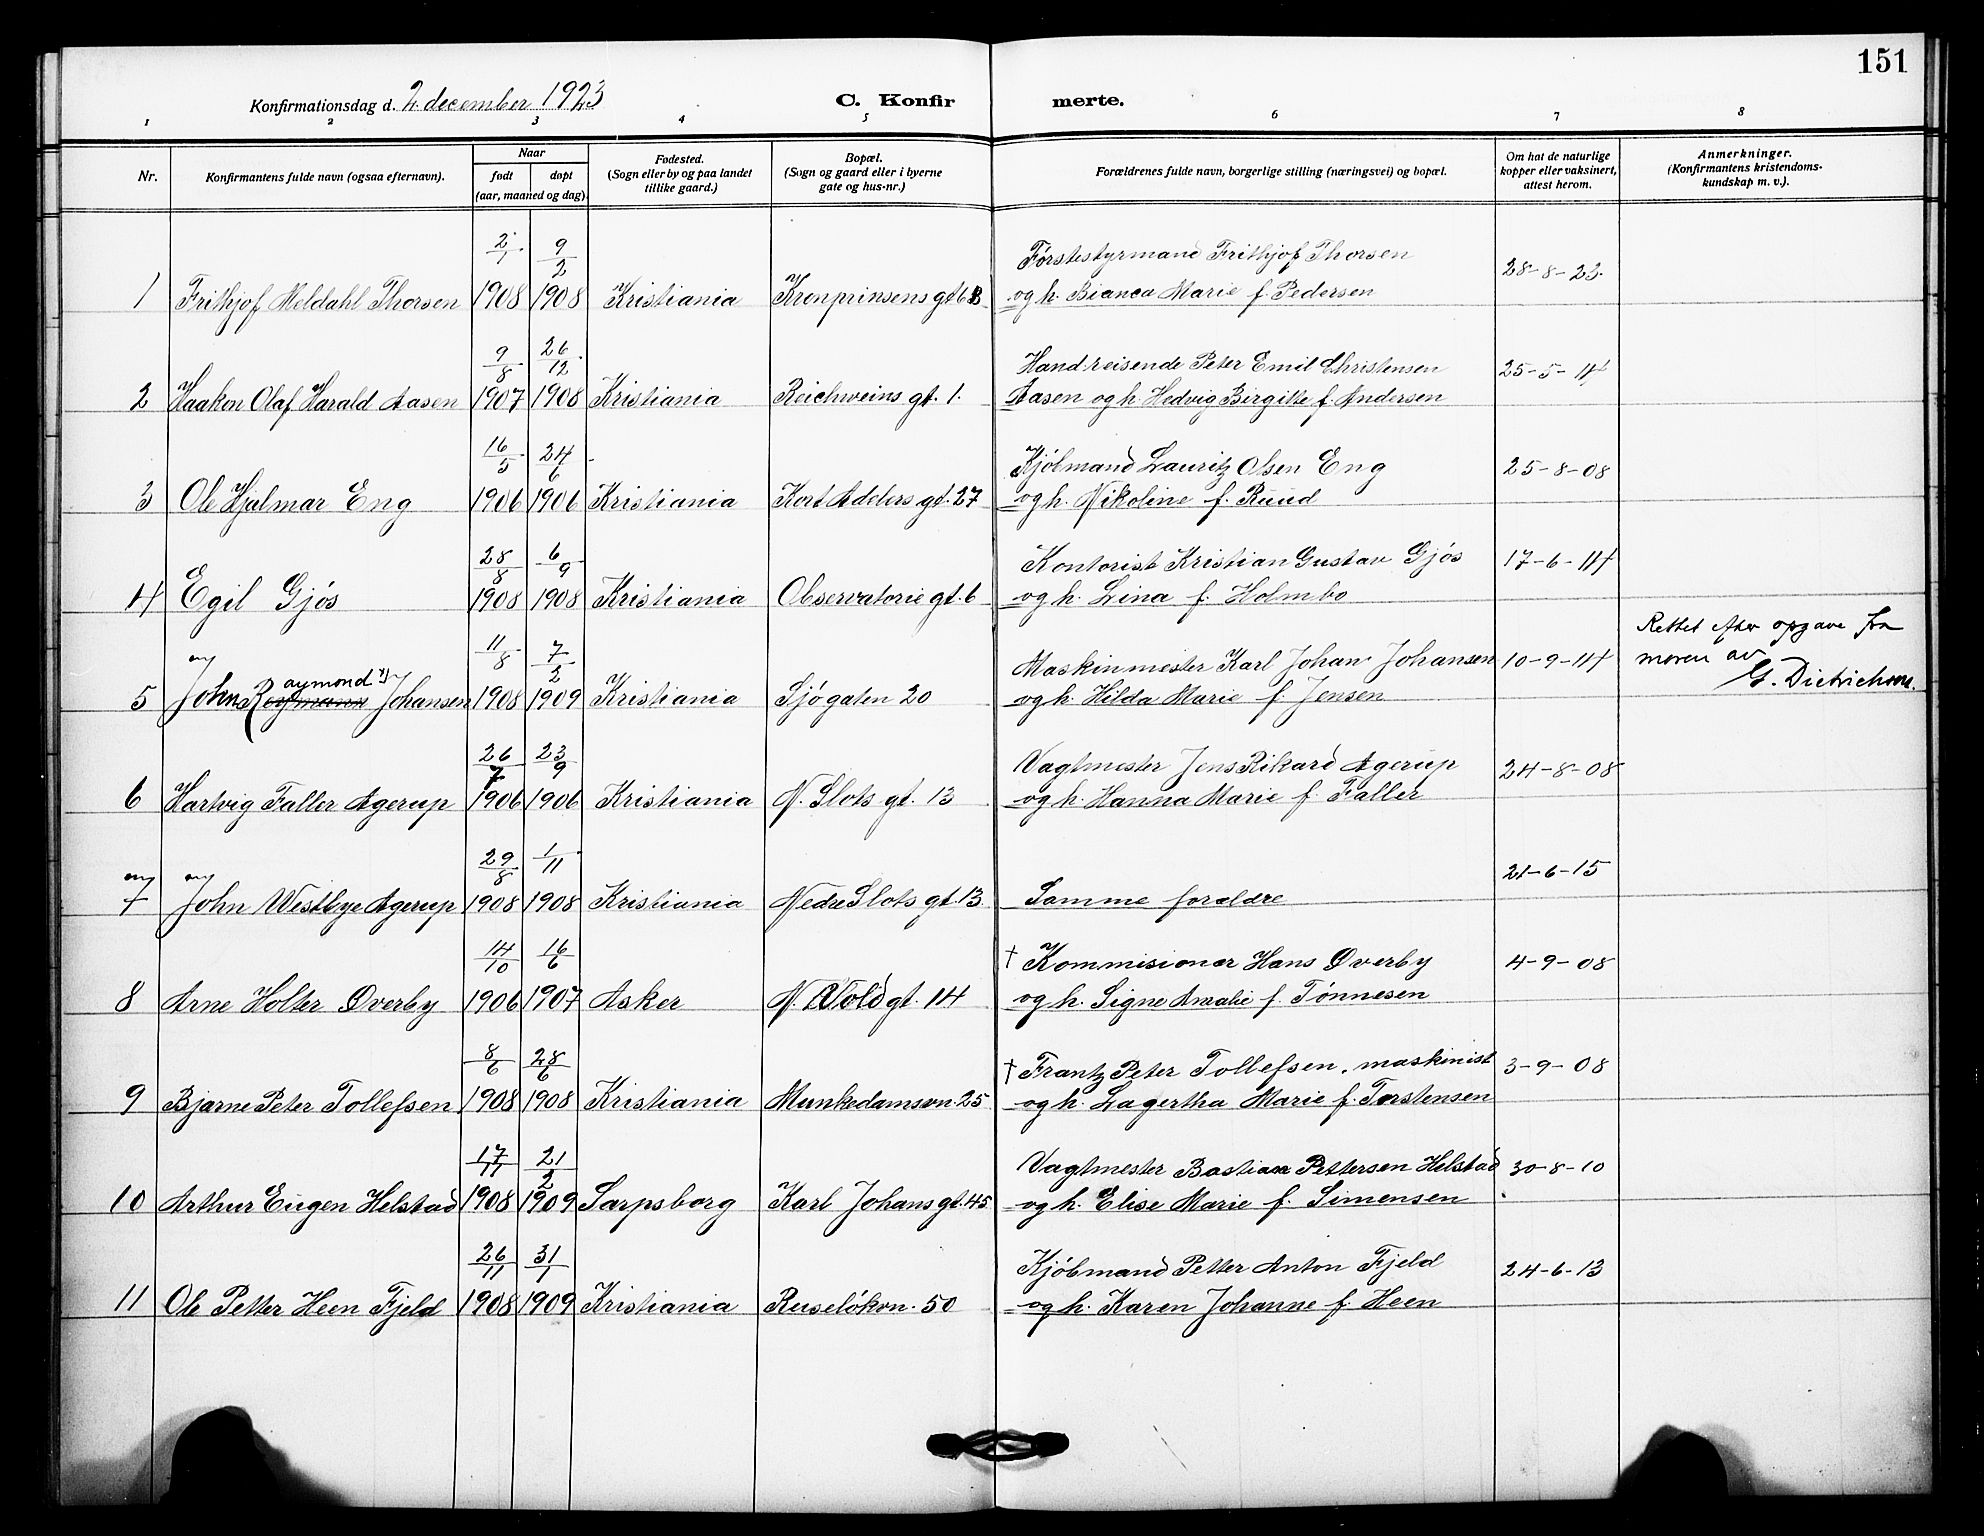 151
Konfirmationsdag d. 2 december 1923
C. Konfir merte.
1 2 3 4 5 6 7 8
Nr.
Konfirmantens fulde navn (ogsaa efternavn).
Naar
født
døpt
(aar, maaned og dag)
Fødested.
(Sogn eller by og paa landet
tillike gaard.)
Bopæl.
(Sogn og gaard eller i byerne
gate og hus-nr.)
Forældrenes fulde navn, borgerlige stilling (næringsvei) og bopæl.
Om hat de naturlige
kopper eller vaksinert,
attest herom.
Anmerkninger.
(Konfirmantens kristendoms-
kundskap m. v.).
2/1 9/2 Førstestyrmand Frithjof Thorsen 28-8-23.
1 Frithjof Meldahl Thorsen 1908 1908 Kristiania Kronprinsens gt 6B og h. Bianca Marie f. Pedersen
9/8 26/12 Hand.reisende Peter Emil Christensen 25-5-14
2 Haakon Olaf Harald Aasen 1907 1908 Kristiania Reichweins gt. 1. Aasen og h. Hedvig Birgitte f. Andersen
16/5 24/6 Kjøbmand Lauritz Olsen Eng 25-8-08
3 Ole Hjalmar Eng 1906 1906 Kristiania Kort Adelers gt. 27 og h. Nikoline f. Ruud
28/8 6/9 Kontorist Kristian Gustav Gjøs 17-6-14
4 Egil Gjøs 1908 1908 Kristiania Observatorie gt. 6 og h. Lina f. Holmbo
11/8 7/2 Maskinmester Karl Johan Johansen 10-9-14 Rettet efter opgave fra
moren av
G. Dietrichson.
aymond
5 John R Johansen 1908 1909 Kristiania Sjøgaten 20 og h. Hilda Marie f. Jensen
26/7 23/9 Vagtmester Jens Rikard Agerup 24-8-08
6 Hartvig Faller Agerup 1906 1906 Kristiania N. Slots gt. 13 og h. Hanna Marie f. Faller
29/8 1/11 21-6-15
7 John Westbye Agerup 1908 1908 Kristiania Nedre Slots gt. 13 Samme forældre
14/10 16/6 † Kommisionær Hans Øverby 4-9-08
8 Arne Holter Øverby 1906 1907 Asker N. Vold gt. 14 og h. Signe Amalie f. Tønnesen
8/6 28/6 † Frantz Peter Tollefsen, maskinist 3-9-08
9 Bjarne Peter Tollefsen 1908 1908 Kristiania Munkedamsvn. 25 og h. Lagertha Marie f. Torstensen
17/11 21/2 Vagtmester Bastian Pettersen Helstad 30-8-10
10 Arthur Eugen Helstad 1908 1909 Sarpsborg Karl Johans gt. 45 og h. Elise Marie f. Simensen
26/11 31/1 Kjøbmand Petter Anton Fjeld 24-6-13
11 Ole Petter Heen Fjeld 1908 1909 Kristiania Ruseløkvn. 50 og h. Karen Johanne f. Heen